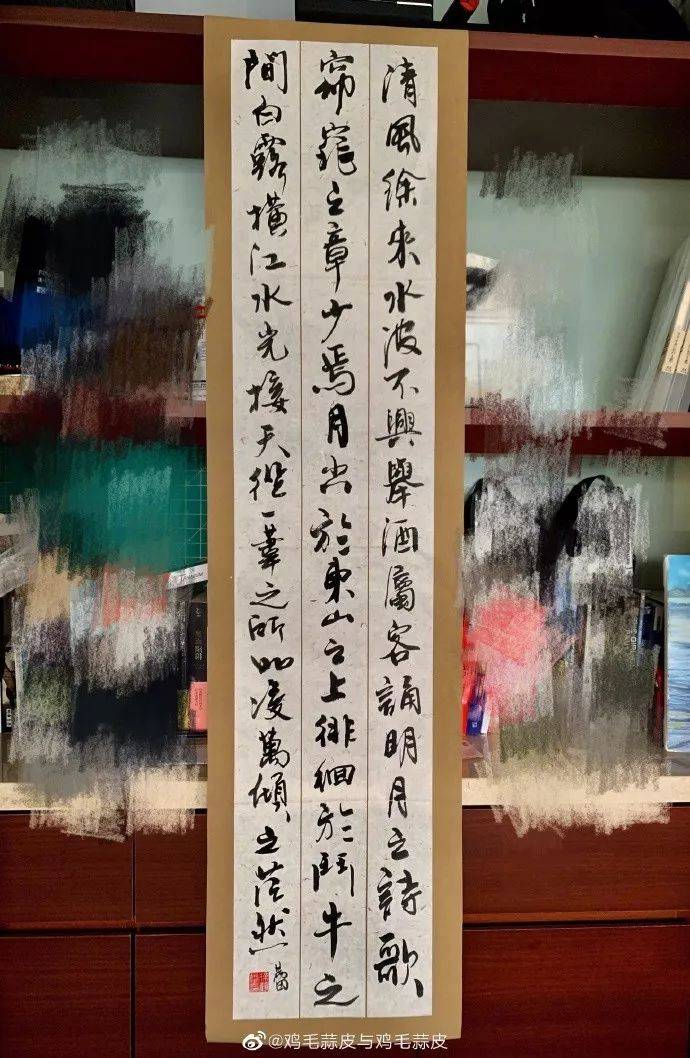 清風徐來水波不興舉酒屬客誦明月之詩歌
窈窕之章少焉月出於東山之上徘徊於鬥牛之
間白露橫江水光接天從一葦之所如凌萬傾之茫然
@鸡毛蒜皮与鸡毛蒜皮